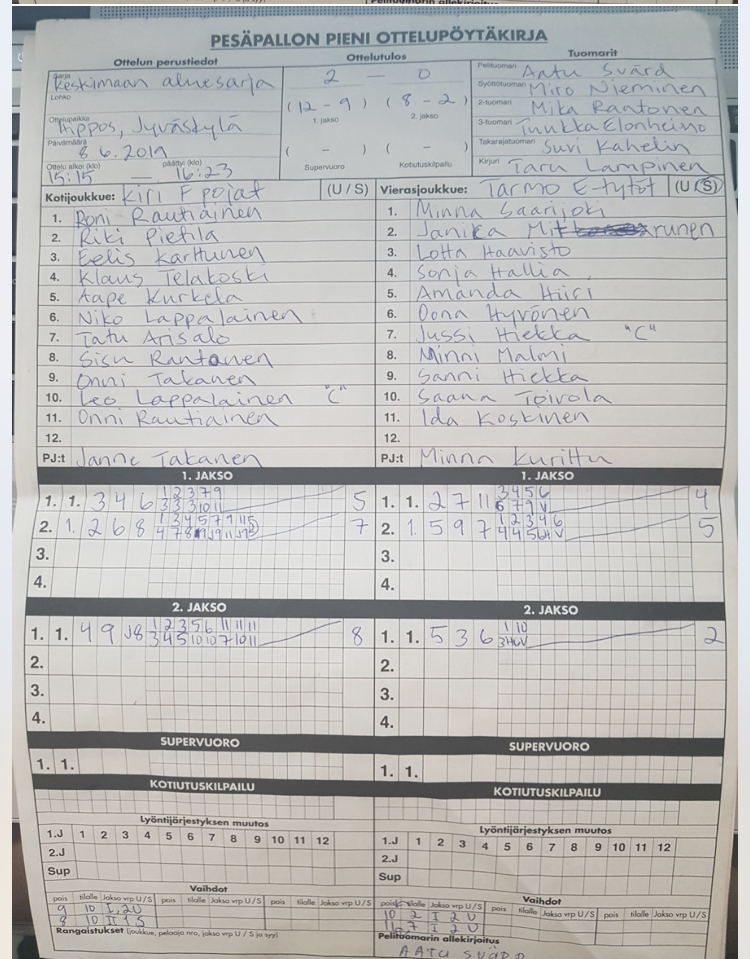 PESÄPALLON PIENI OTTELUPÖYTÄKIRJA
Ottelun perustiedot
Sarja Keskimaan aluesarja
Lohko
Ottelupaikka Hippos, Jyväskylä
Päivämäärä 8.6.2019
Ottelu alkoi (klo) päättyi (klo)
15:15 — 16:23
Ottelutulos
2 — 0
(12 - 9) (8 - 2)
1. jakso 2. jakso
( - ) ( - )
Supervuoro Kotiutuskilpailu
Tuomarit
Pelituomari Aatu Svärd
Syöttötuomari Miro Nieminen
2-tuomari Mika Rantonen
3-tuomari Tuukka Elonheimo
Takarajatuomari Suvi Kahelin
Kirjuri Taru Lampinen
Kotijoukkue: Kiri F pojat (U / S)
1. Roni Rautiainen
2. Riki Pietila
3. Eelis Karttunen
4. Klaus Telakoski
5. Aape Kurkela
6. Niko Lappalainen
7. Tatu Arisalo
8. Sisu Rantanen
9. Onni Takanen
10. Leo Lappalainen "C"
11. Onni Rautiainen
12.
PJ:t Janne Takanen
Vierasjoukkue: Tarmo E-tytöt (U / S)
1. Minna Saarijoki
2. Janika Mitrunen
3. Lotta Haavisto
4. Sonja Hallia
5. Amanda Hiiri
6. Oona Hyrönen
7. Jussi Hiekka "C"
8. Minni Malmi
9. Sanni Hiekka
10. Saana Toivola
11. Ida Koskinen
12.
PJ:t Minna Kurittu
1. JAKSO
1. 1. 3 4 6 1 2 3 7 9 5
3 3 3 10 11
2. 1. 2 6 8 7
3.
4.
1. JAKSO
1. 1. 2 7 11 3 4 5 6 4
6 7 9 V
2. 1 5 9 7 1 2 3 4 6 5
4 4 5 6H V
3.
4.
2. JAKSO
1. 1. 4 9 J8 1 2 3 5 6 11 11 11 8
3 4 5 10 10 7 10 11
2.
3.
4.
2. JAKSO
1. 1. 5 3 6 1 10 2
2.
3.
4.
SUPERVUORO
1. 1.
SUPERVUORO
1. 1.
KOTIUTUSKILPAILU
KOTIUTUSKILPAILU
Lyöntijärjestyksen muutos
1.J 1 2 3 4 5 6 7 8 9 10 11 12
2.J
Sup
Lyöntijärjestyksen muutos
1.J 1 2 3 4 5 6 7 8 9 10 11 12
2.J
Sup
Vaihdot
pois tilalle Jakso vrp U/S pois tilalle Jakso vrp U/S pois tilalle Jakso vrp U/S
9 10 I, 2U
8 10 II 1 S
Rangaistukset (joukkue, pelaaja nro, jakso vrp U / S ja syy)
Vaihdot
pois tilalle Jakso vrp U/S pois tilalle Jakso vrp U/S pois tilalle Jakso vrp U/S
10 2 I 2 U
11 7 I 2 U
Pelituomarin allekirjoitus
AATU SVÄRD